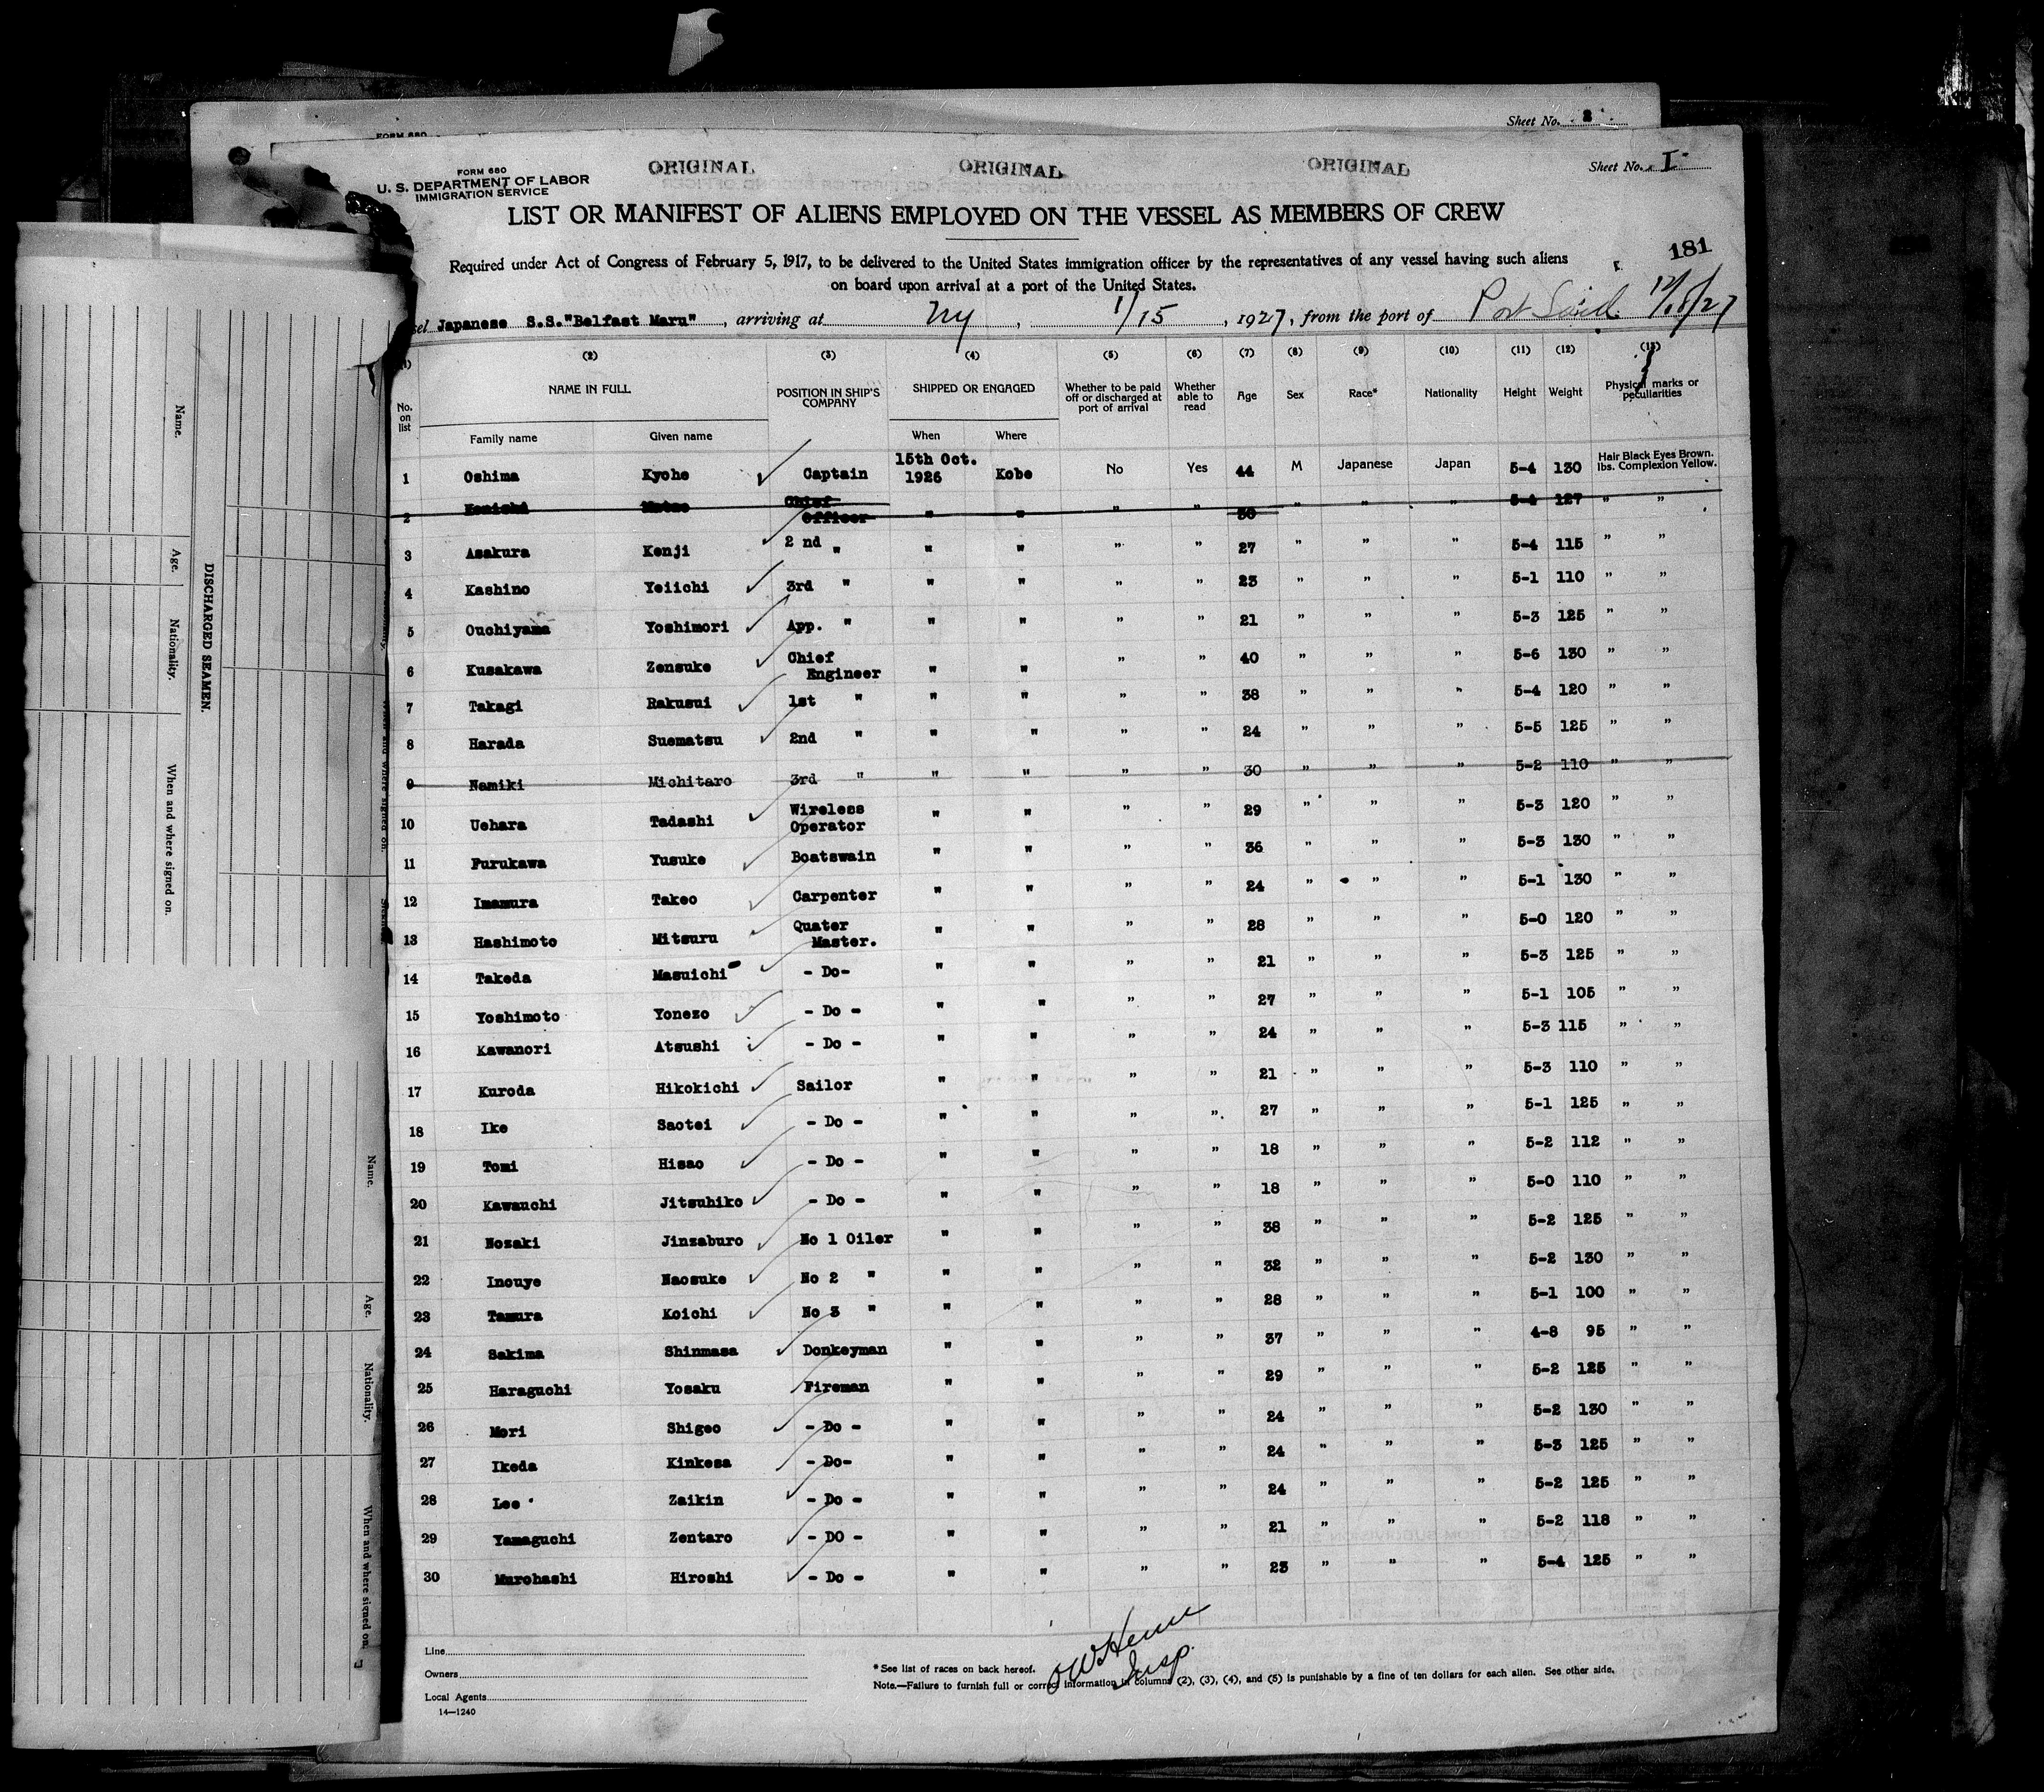 Sheet No. 2
FORM 680
ORIGINAL ORIGINAL ORIGINAL
Sheet No. I
FORM 680
U. S. DEPARTMENT OF LABOR
IMMIGRATION SERVICE
LIST OR MANIFEST OF ALIENS EMPLOYED ON THE VESSEL AS MEMBERS OF CREW
181
Required under Act of Congress of February 5, 1917, to be delivered to the United States immigration officer by the representatives of any vessel having such aliens
on board upon arrival at a port of the United States.
sel Japanese S.S."Belfast Maru", arriving at Ny, 1/15, 1927, from the port of Port Said 12/18/27
(2) (3) (4) (5) (6) (7) (8) (9) (10) (11) (12) (13)
No. on list NAME IN FULL POSITION IN SHIP'S COMPANY SHIPPED OR ENGAGED Whether to be paid off or discharged at port of arrival Whether able to read Age Sex Race* Nationality Height Weight Physical marks or peculiarities
Family name Given name When Where
1 Oshima Kyohe Captain 15th Oct. 1926 Kobe No Yes 44 M Japanese Japan 5-4 130 lbs. Hair Black Eyes Brown. Complexion Yellow.
2 Chief Officer " " " " 30 " " " 5-4 127 " "
3 Asakura Kenji 2 nd " " " " " 27 " " " 5-4 115 " "
4 Kashino Yeiichi 3rd " " " " " 23 " " " 5-1 110 " "
5 Ouchiyama Yoshimori App. " " " " " 21 " " " 5-3 125 " "
6 Kusakawa Zensuke Chief Engineer " " " " 40 " " " 5-6 130 " "
7 Takagi Rakusui 1st " " " " " 38 " " " 5-4 120 " "
8 Harada Suematsu 2nd " " " " " 24 " " " 5-5 125 " "
9 Namiki Michitaro 3rd " " " " " 30 " " " 5-2 110 " "
10 Uehara Tadashi Wireless Operator " " " " 29 " " " 5-3 120 " "
11 Furukawa Yusuke Boatswain " " " " 36 " " " 5-3 130 " "
12 Imamura Takeo Carpenter " " " " 24 " " " 5-1 130 " "
13 Hashimoto Mitsuru Quater Master. " " " " 28 " " " 5-0 120 " "
14 Takeda Masuichi - Do- " " " " 21 " " " 5-3 125 " "
15 Yoshimoto Yonezo - Do - " " " " 27 " " " 5-1 105 " "
16 Kawanori Atsushi - Do - " " " " 24 " " " 5-3 115 " "
17 Kuroda Hikokichi Sailor " " " " 21 " " " 5-3 110 " "
18 Ike Saotei - Do - " " " " 27 " " " 5-1 125 " "
19 Tomi Hisao - Do - " " " " 18 " " " 5-2 112 " "
20 Kawauchi Jitsuhiko - Do - " " " " 18 " " " 5-0 110 " "
21 Nozaki Jinzaburo No 1 Oiler " " " " 38 " " " 5-2 125 " "
22 Inouye Naosuke No 2 " " " " " 32 " " " 5-2 130 " "
23 Tamura Koichi No 3 " " " " " 28 " " " 5-1 100 " "
24 Sakima Shinmasa Donkeyman " " " " 37 " " " 4-8 95 " "
25 Haraguchi Yosaku Fireman " " " " 29 " " " 5-2 125 " "
26 Mori Shigeo - Do - " " " " 24 " " " 5-2 130 " "
27 Ikeda Kinkesa - Do- " " " " 24 " " " 5-3 125 " "
28 Lee Zaikin - Do - " " " " 24 " " " 5-2 125 " "
29 Yamaguchi Zentaro - DO - " " " " 21 " " " 5-2 118 " "
30 Murohashi Hiroshi - Do - " " " " 23 " " " 5-4 125 " "
Line
Owners
Local Agents
14—1240
Insp.
* See list of races on back hereof.
Note.—Failure to furnish full or correct information in columns (2), (3), (4), and (5) is punishable by a fine of ten dollars for each alien. See other side.
DISCHARGED SEAMEN.
Name. Age. Nationality. When and where signed on.
Name. Age. Nationality. When and where signed on.